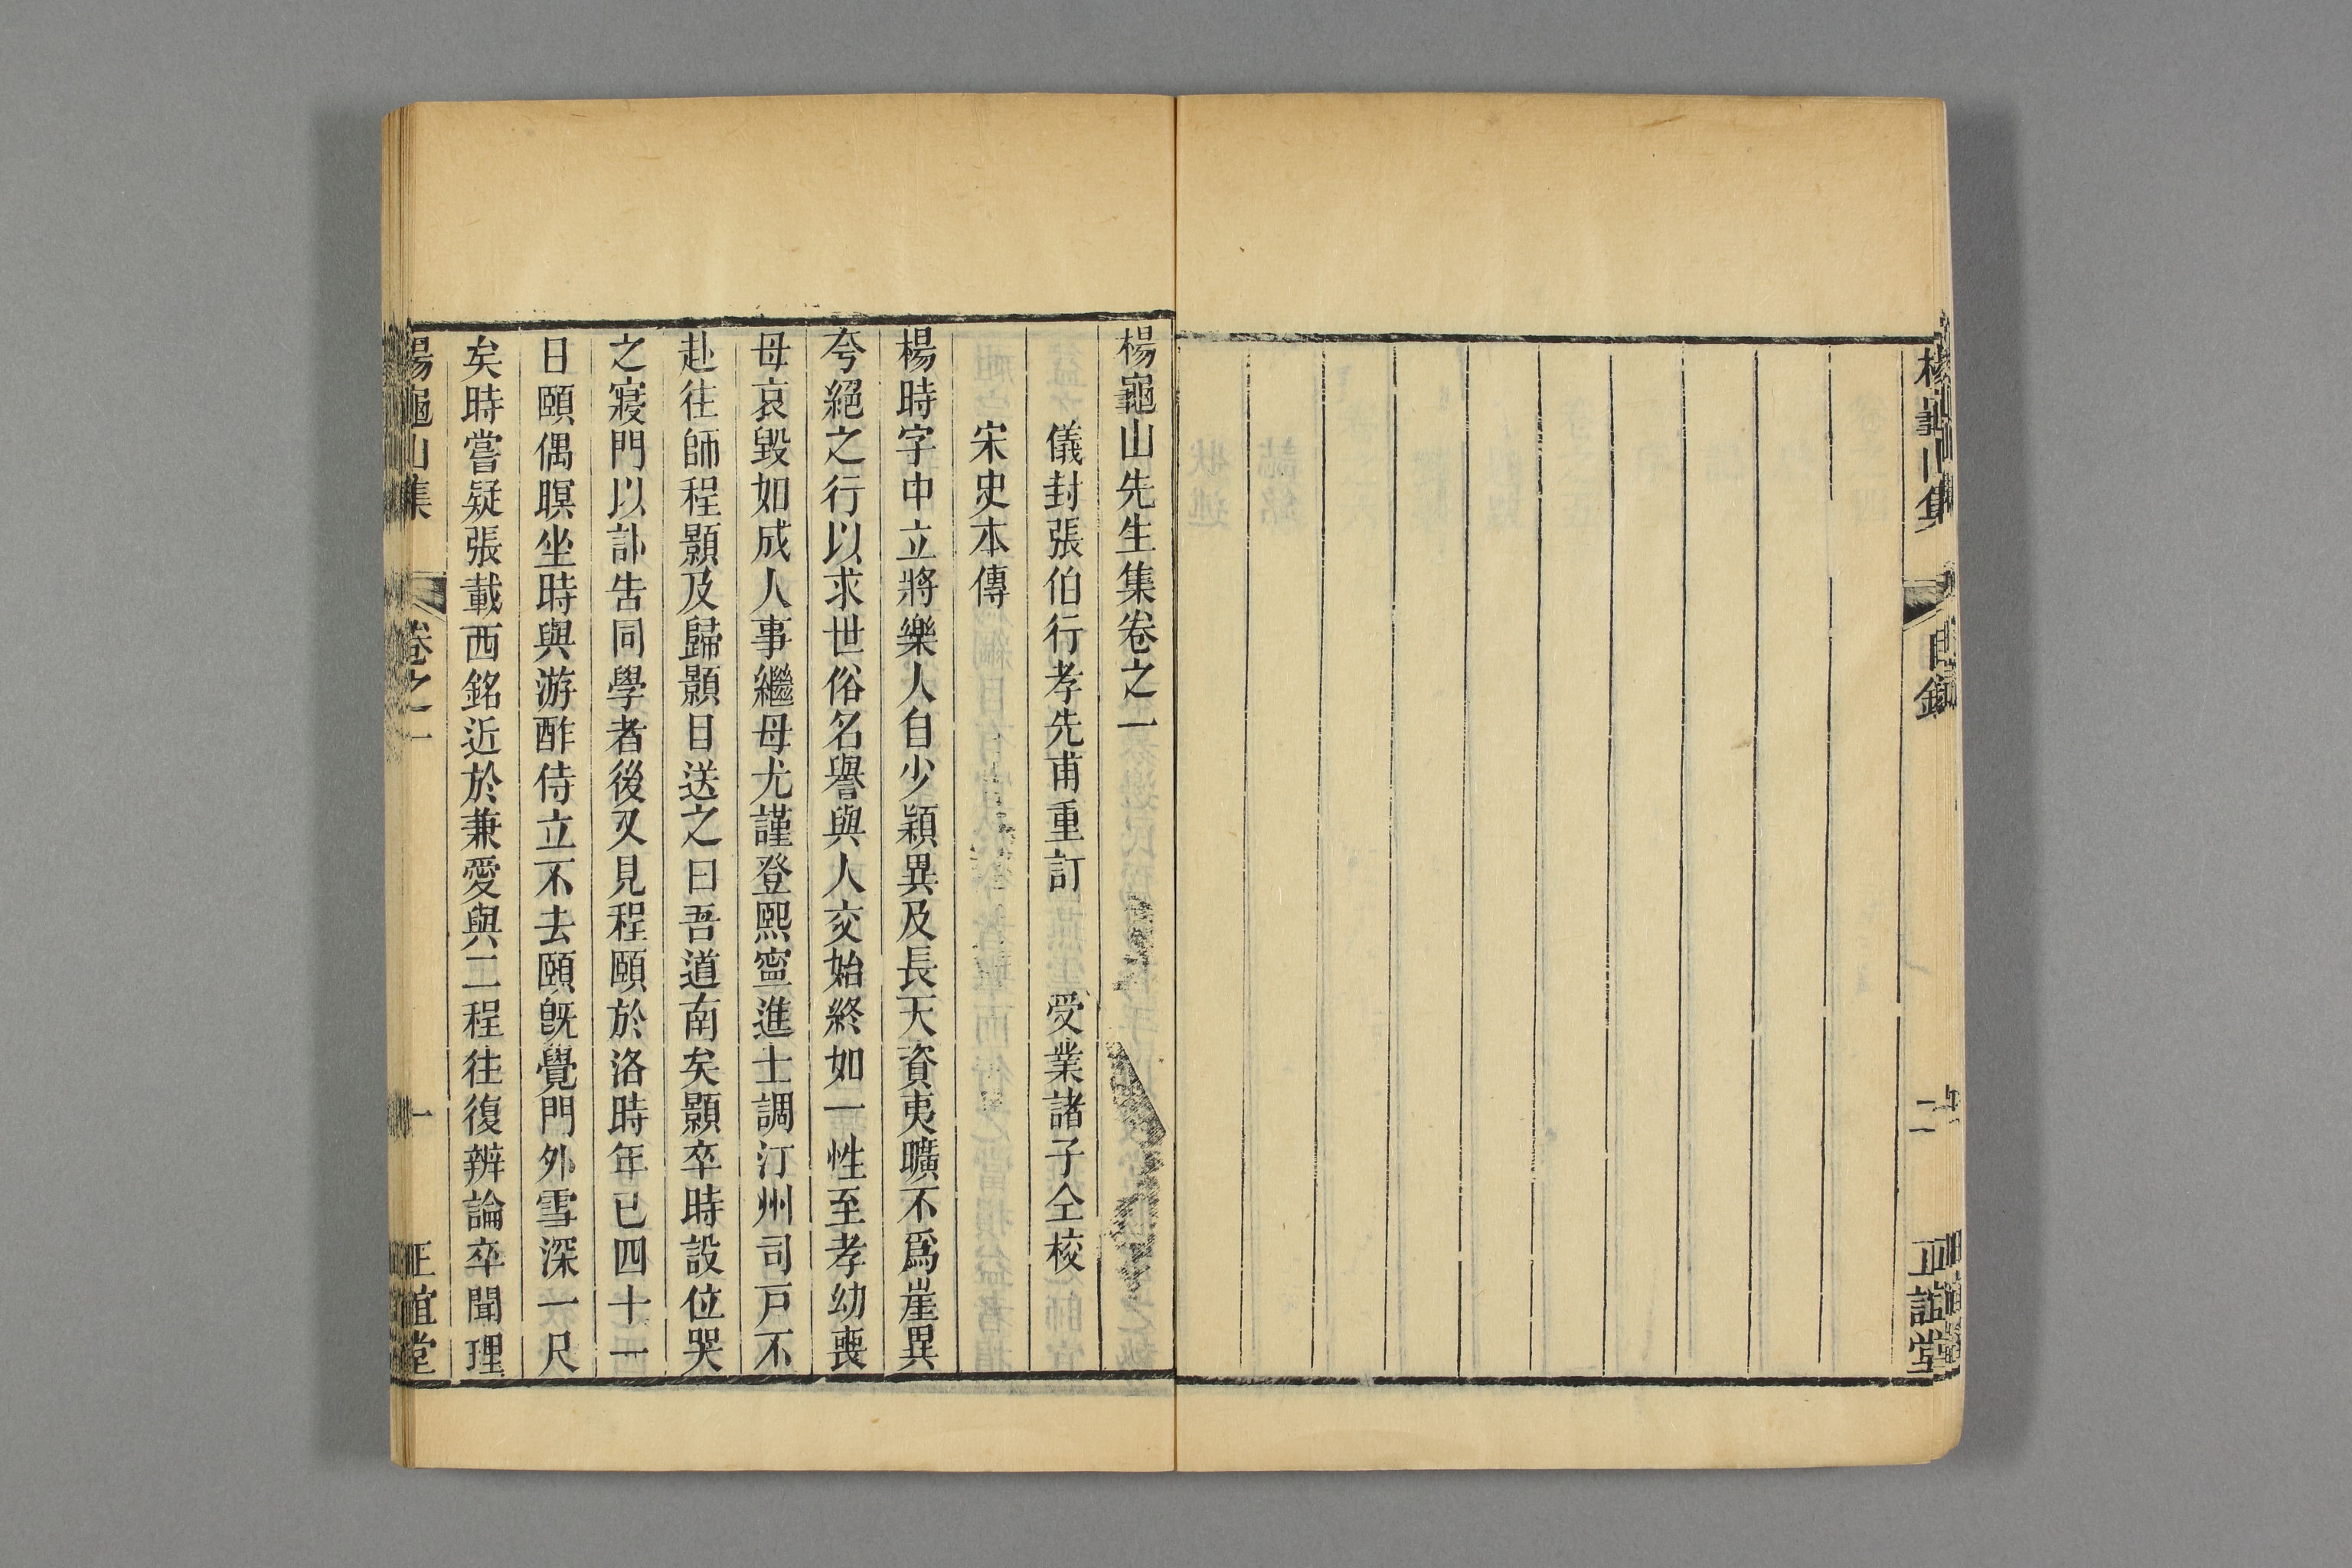 楊龜山集
目錄
二
正誼堂
楊龜山先生集卷之一
儀封張伯行孝先甫重訂 受業諸子仝校
宋史本傳
楊時字中立將樂人自少穎異及長天資夷曠不爲崖異
夸絕之行以求世俗名譽與人交始終如一性至孝幼喪
母哀毀如成人事繼母尤謹登熙寧進士調汀州司戸不
赴往師程顥及歸顥目送之曰吾道南矣顥卒時設位哭
之寢門以訃告同學者後又見程頤於洛時年已四十一
日頤偶瞑坐時與游酢侍立不去頤旣覺門外雪深一尺
矣時嘗疑張載西銘近於兼愛與二程往復辨論卒聞理
楊龜山集
卷之一
一
正誼堂